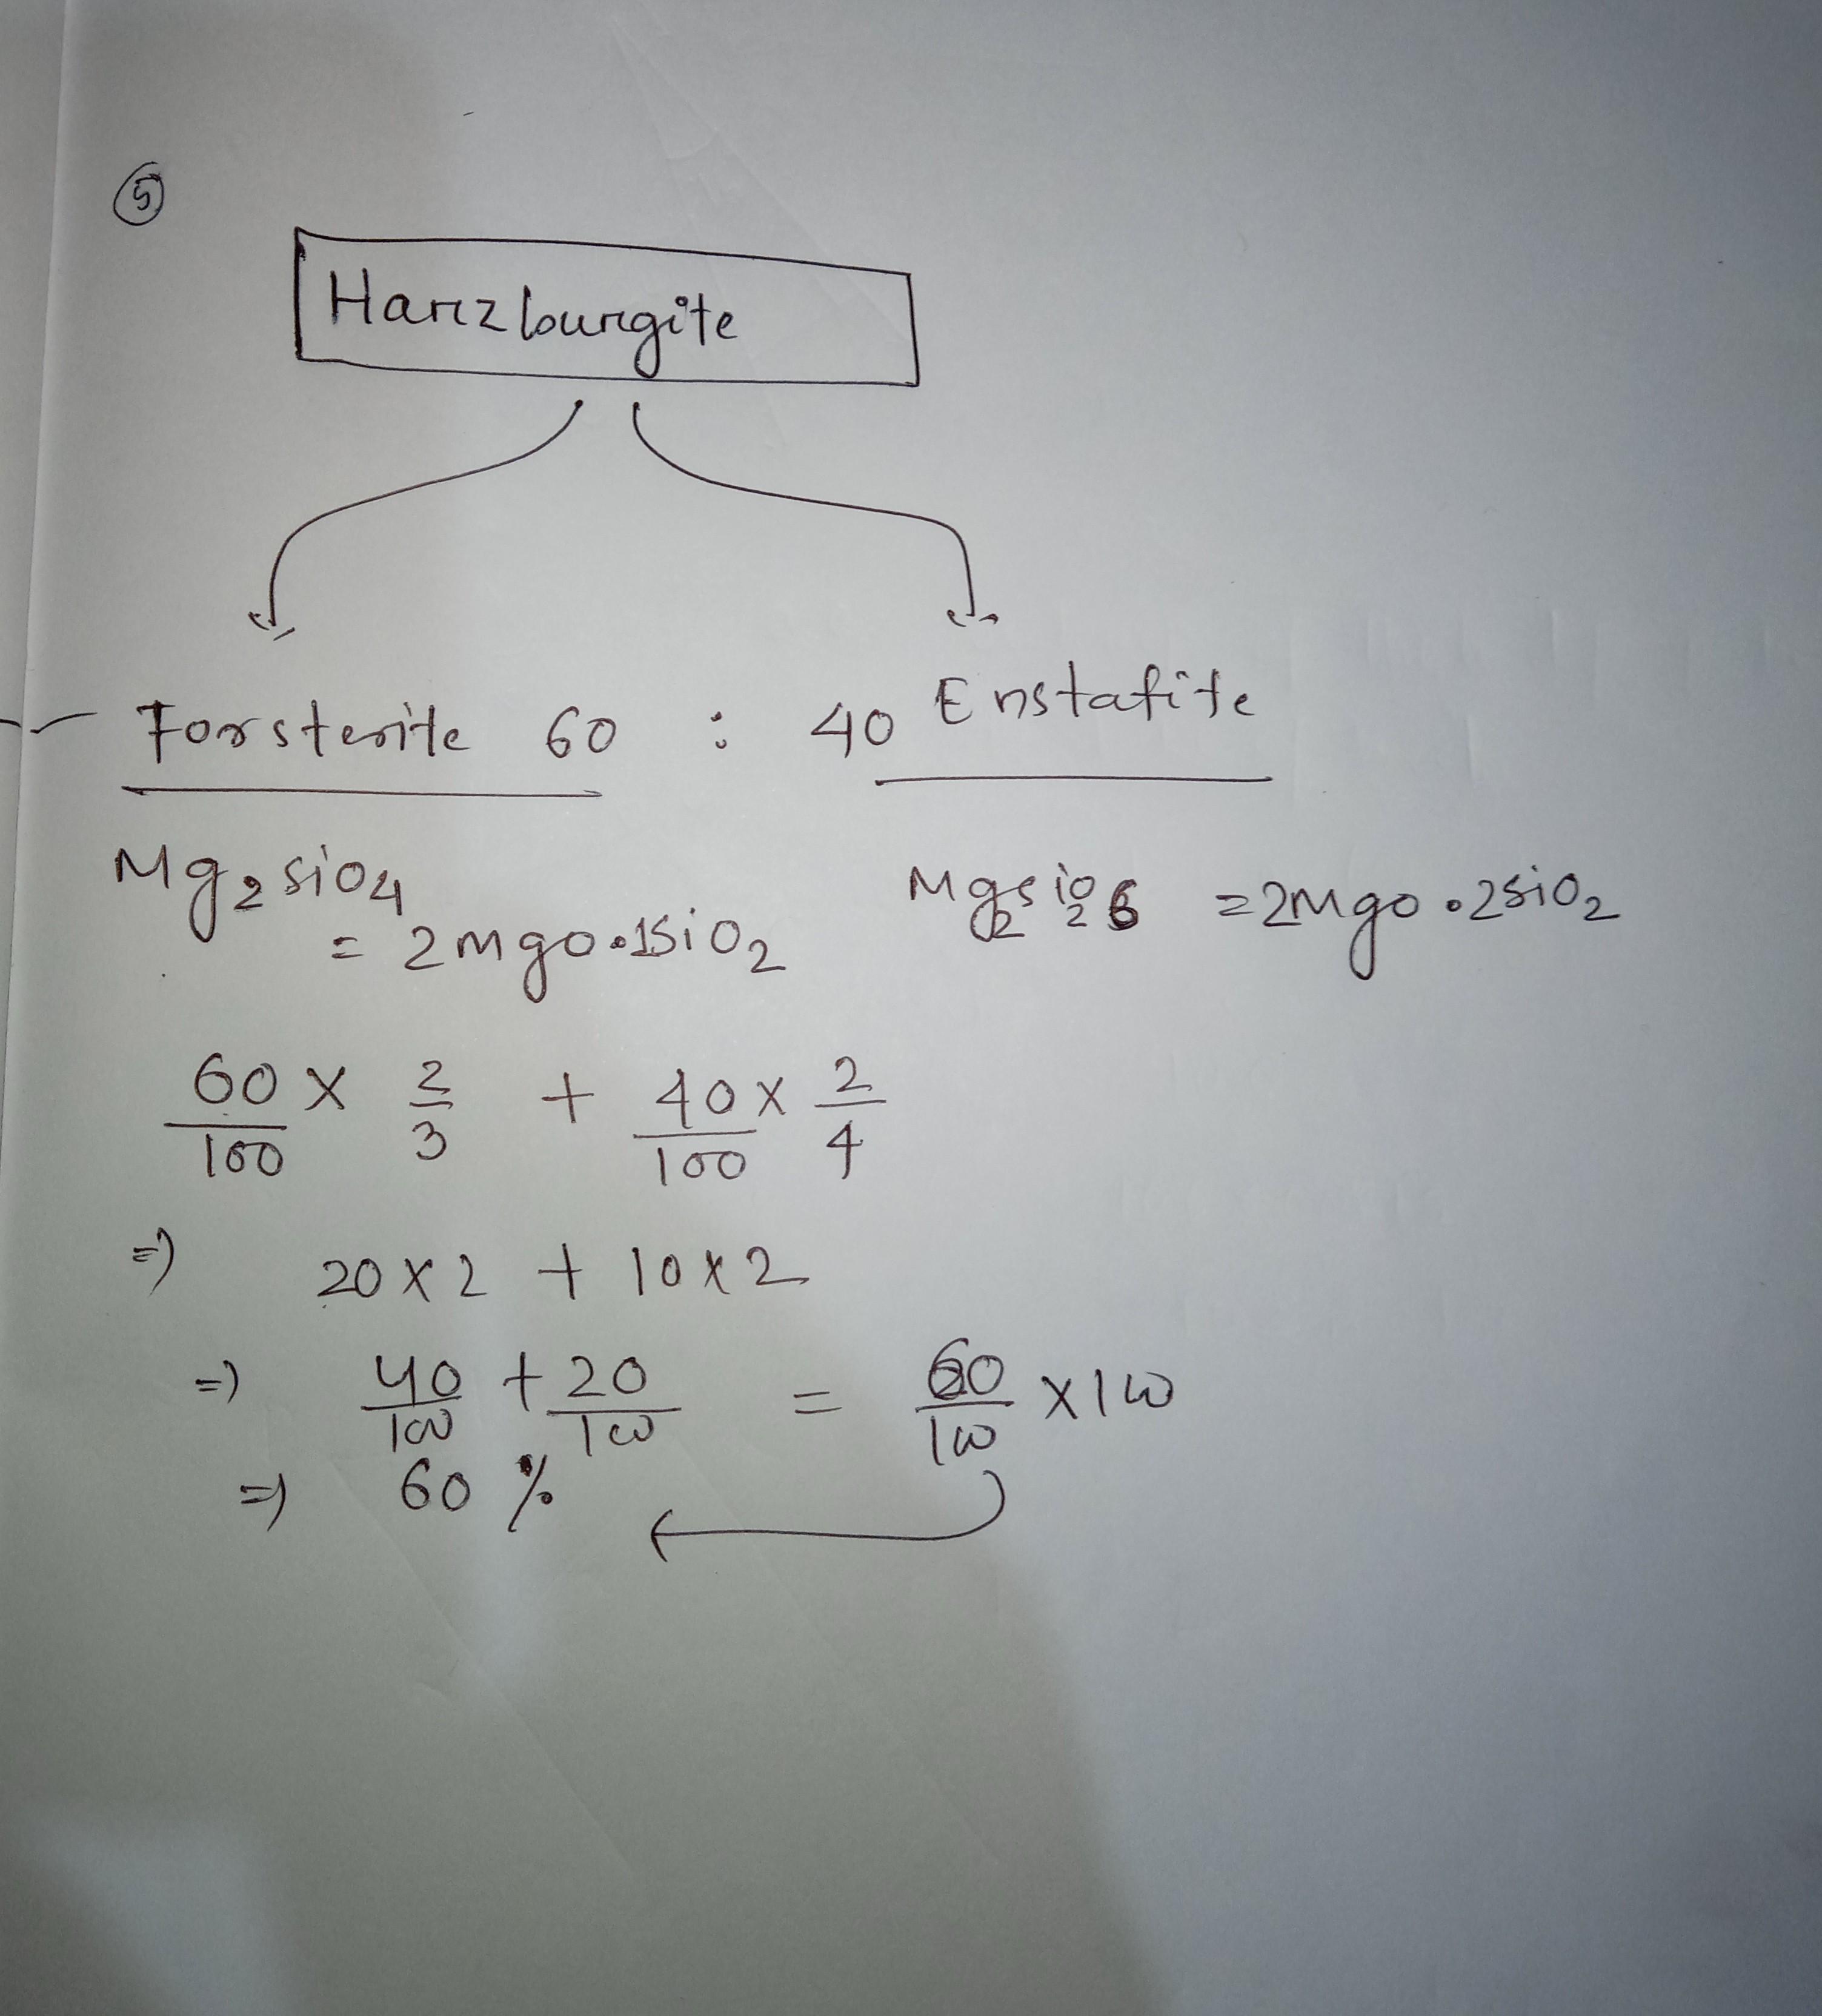 5
Harzburgite
Forsterite 60 : 40 Enstatite
Mg2SiO4 = 2MgO.1SiO2
Mg2Si2O6 = 2MgO.2SiO2
60/100 × 2/3 + 40/100 × 2/4
=) 20 × 2 + 10 × 2
=) 40/100 + 20/100 = 60/100 × 100
=) 60 %